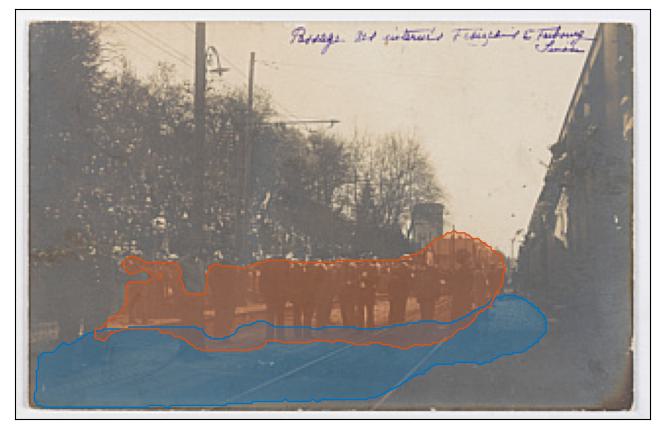 Passage des internés Français à Faubourg